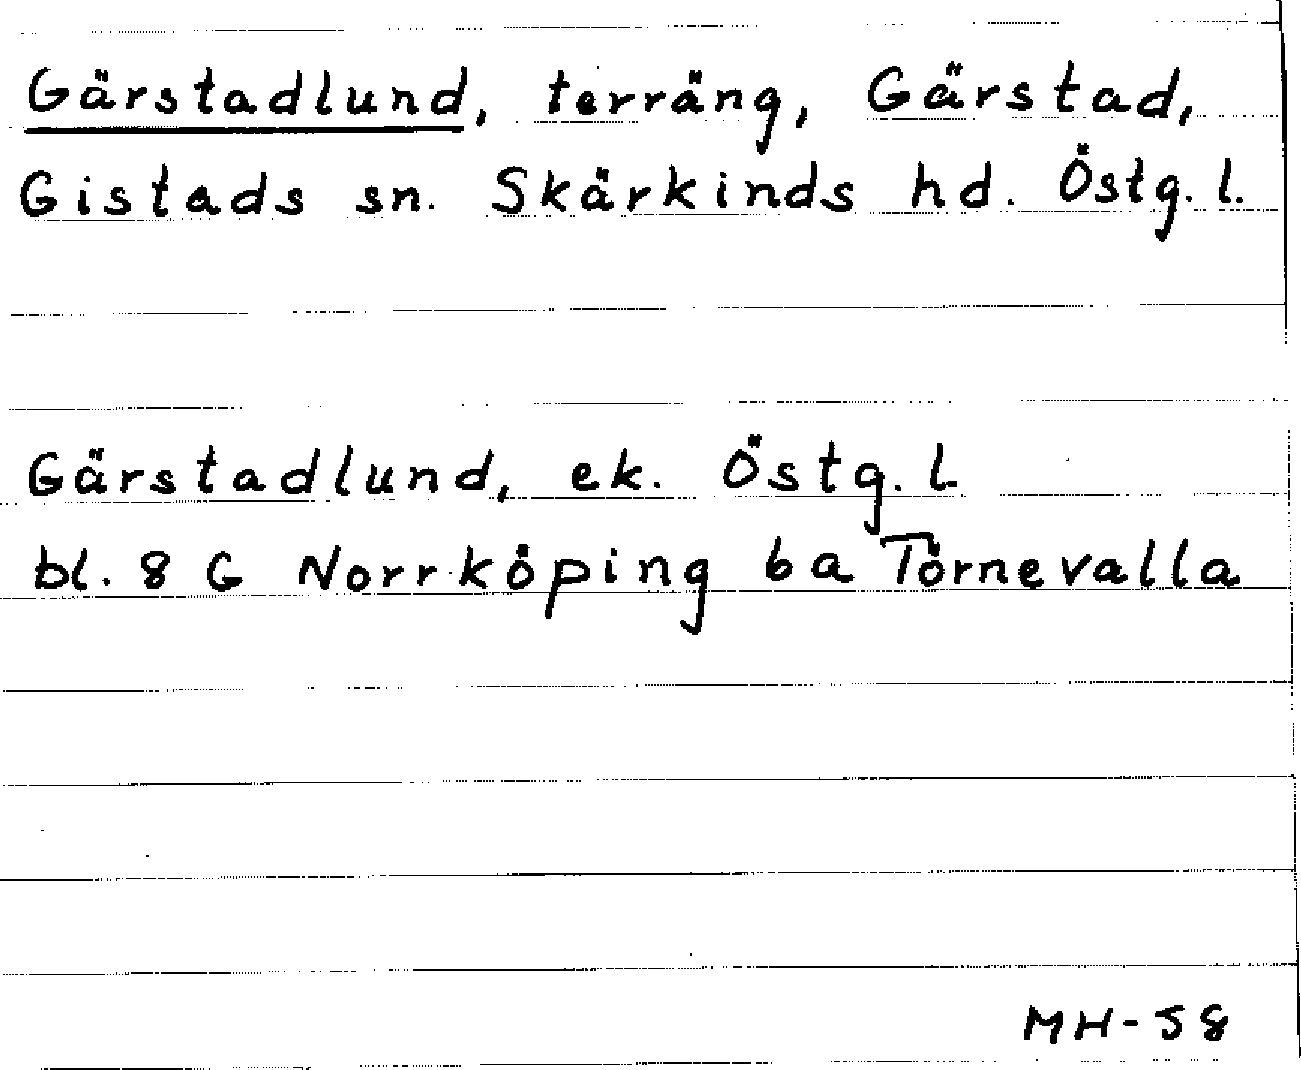 Gärstadlund, terräng, Gärstad,
Gistads sn. Skärkinds hd. Östg. l.
Gärstadlund, ek. Östg. l.
bl. 8 G Norrköping 6a Törnevalla
MH-58